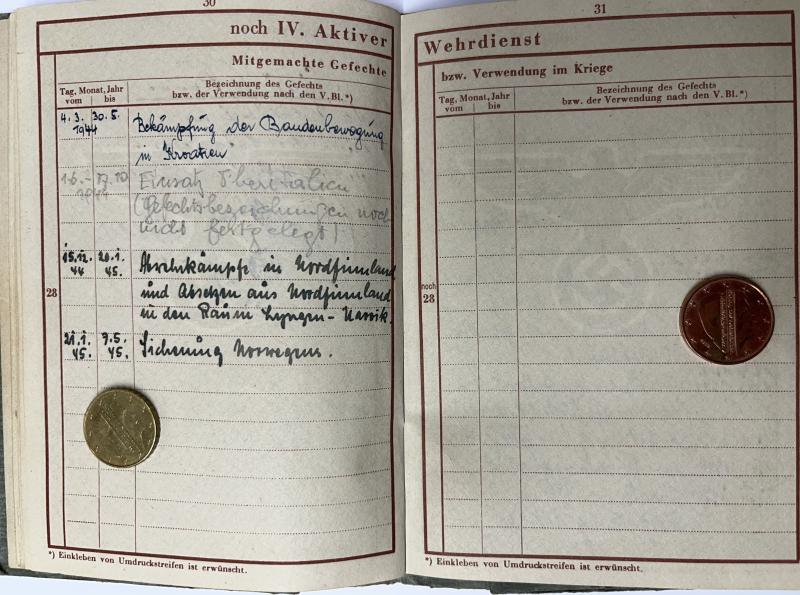 30
noch IV. Aktiver
Mitgemachte Gefechte
Tag, Monat, Jahr
vom bis
Bezeichnung des Gefechts
bzw. der Verwendung nach den V. Bl. *)
4.3. 30.5. Bekämpfung der Bandenbewegung
1944
in Kroatien
1.6. - 17.10. Einsatz Oberitalien
1944 (Gefechtsbezeichnungen noch
nicht festgelegt)
15.12. 20.1. Abwehrkämpfe in Nordfinnland
44 45. und Absetzen aus Nordfinnland
28
in den Raum Lyngen - Narvik.
21.1. 9.5. Sicherung Norwegens.
45. 45.
*) Einkleben von Umdruckstreifen ist erwünscht.
31
Wehrdienst
bzw. Verwendung im Kriege
Tag, Monat, Jahr
vom bis
Bezeichnung des Gefechts
bzw. der Verwendung nach den V. Bl. *)
noch
28
*) Einkleben von Umdruckstreifen ist erwünscht.